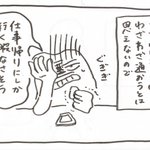 わざわざ通おうには
ないので
ぐぎぎ
仕事帰りにしか
行く暇なさそう